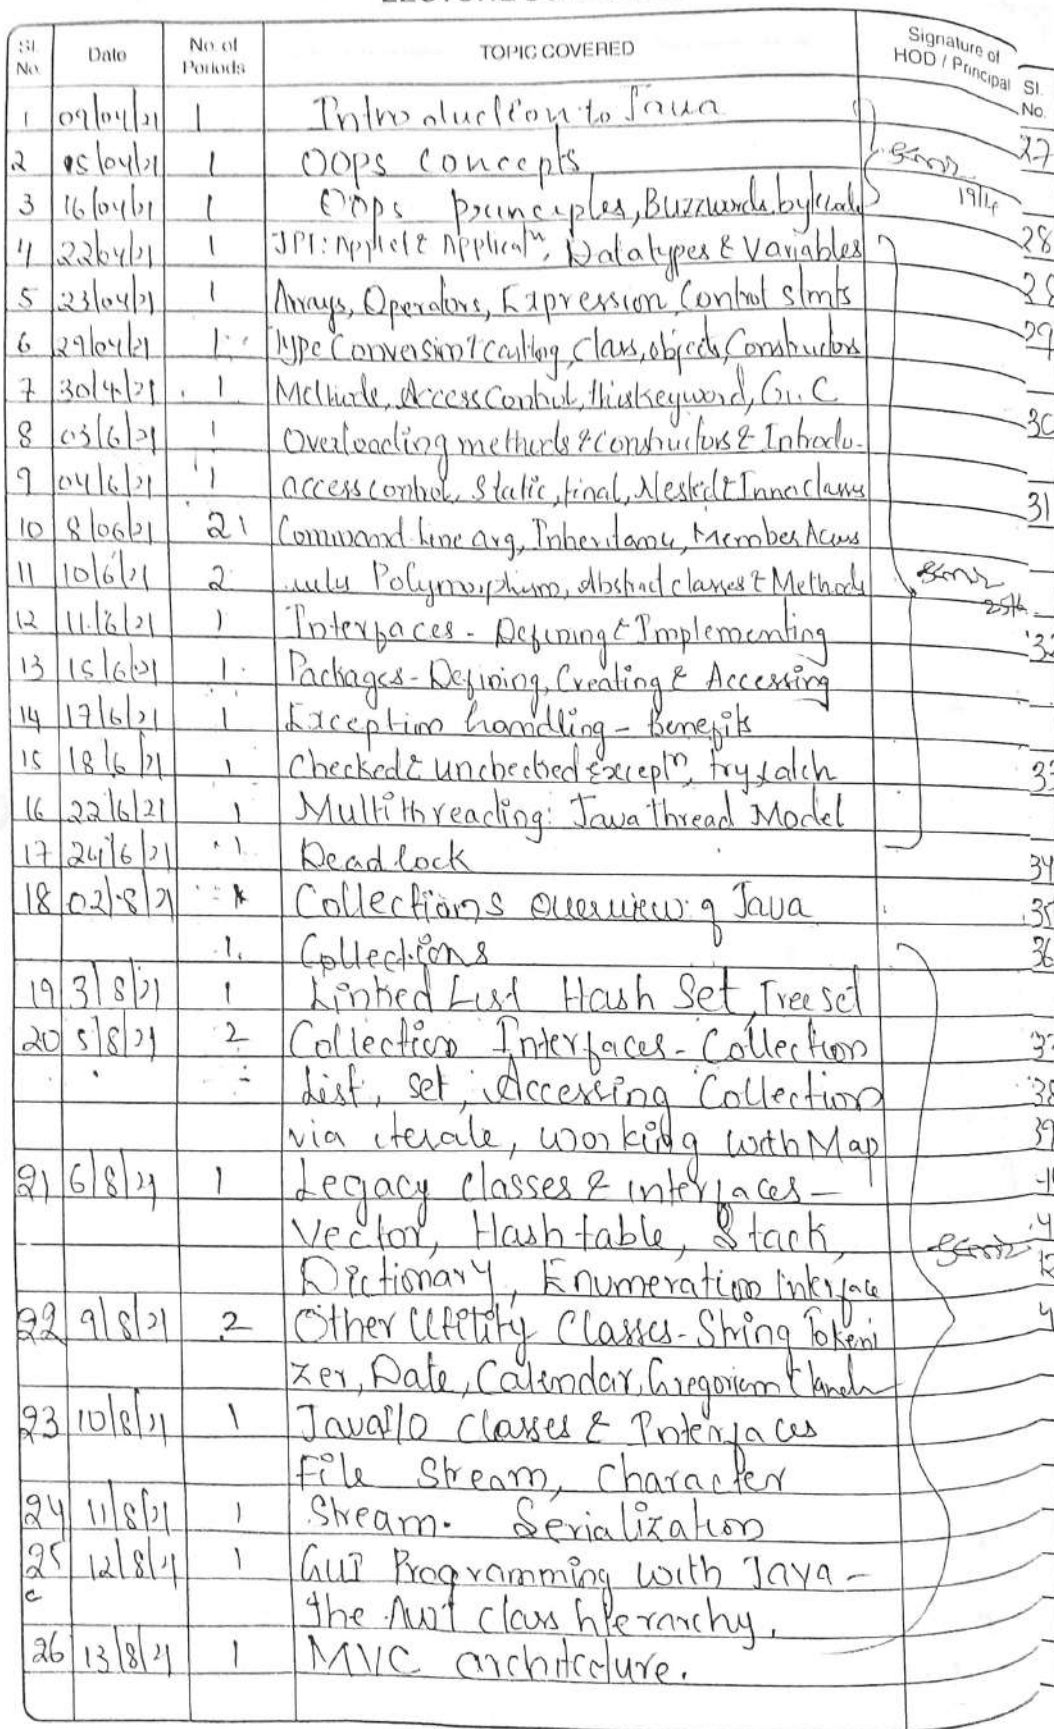 Sl. No. Date No. of Periods TOPIC COVERED Signature of HOD / Principal Sl. No.
1 09/04/21 1 Introduction to Java
2 15/04/21 1 OOPS concepts 27
3 16/04/21 1 OOPs principles, Buzzwords, bytecode 19/4
4 22/04/21 1 JPI: Applet & Applicatn, Datatypes & Variables 28
5 23/04/21 1 Arrays, Operators, Expression, Control stmts 28
6 29/04/21 1 Type Conversion & casting, Class, objects, Constructors 29
7 30/4/21 1 Methods, Access Control, this keyword, G.C
8 03/6/21 1 Overloading methods & constructors & Introdu- 30
9 04/6/21 1 access control, static, final, Nested & Inner classes
10 8/06/21 2 Command line arg, Inheritance, Member Access 31
11 10/6/21 2 Polymorphism, Abstract classes & Methods
12 11/6/21 1 Interfaces - Defining & Implementing 32
13 15/6/21 1 Packages - Defining, Creating & Accessing
14 17/6/21 1 Exception handling - Benefits
15 18/6/21 1 Checked & unchecked Exceptn, try catch 33
16 22/6/21 1 Multithreading: Java thread Model
17 24/6/21 1 Deadlock 34
18 02/8/21 Collections overview of Java 35
1 Collections 36
19 3/8/21 1 Linked List Hash Set, Tree set
20 5/8/21 2 Collection Interfaces - Collection
list, set, Accessing Collection 38
via iterate, working with Map 39
21 6/8/21 1 Legacy classes & interfaces -
Vector, Hash table, Stack,
Dictionary, Enumeration interface
22 9/8/21 2 Other Utility Classes - String Tokeni
zer, Date, Calendar, Gregorian
23 10/8/21 1 Java I/O Classes & Interfaces
File Stream, Character
24 11/8/21 1 Stream. Serialization
25 12/8/21 1 GUI Programming with Java -
the AWT class hierarchy.
26 13/8/21 1 MVC architecture.